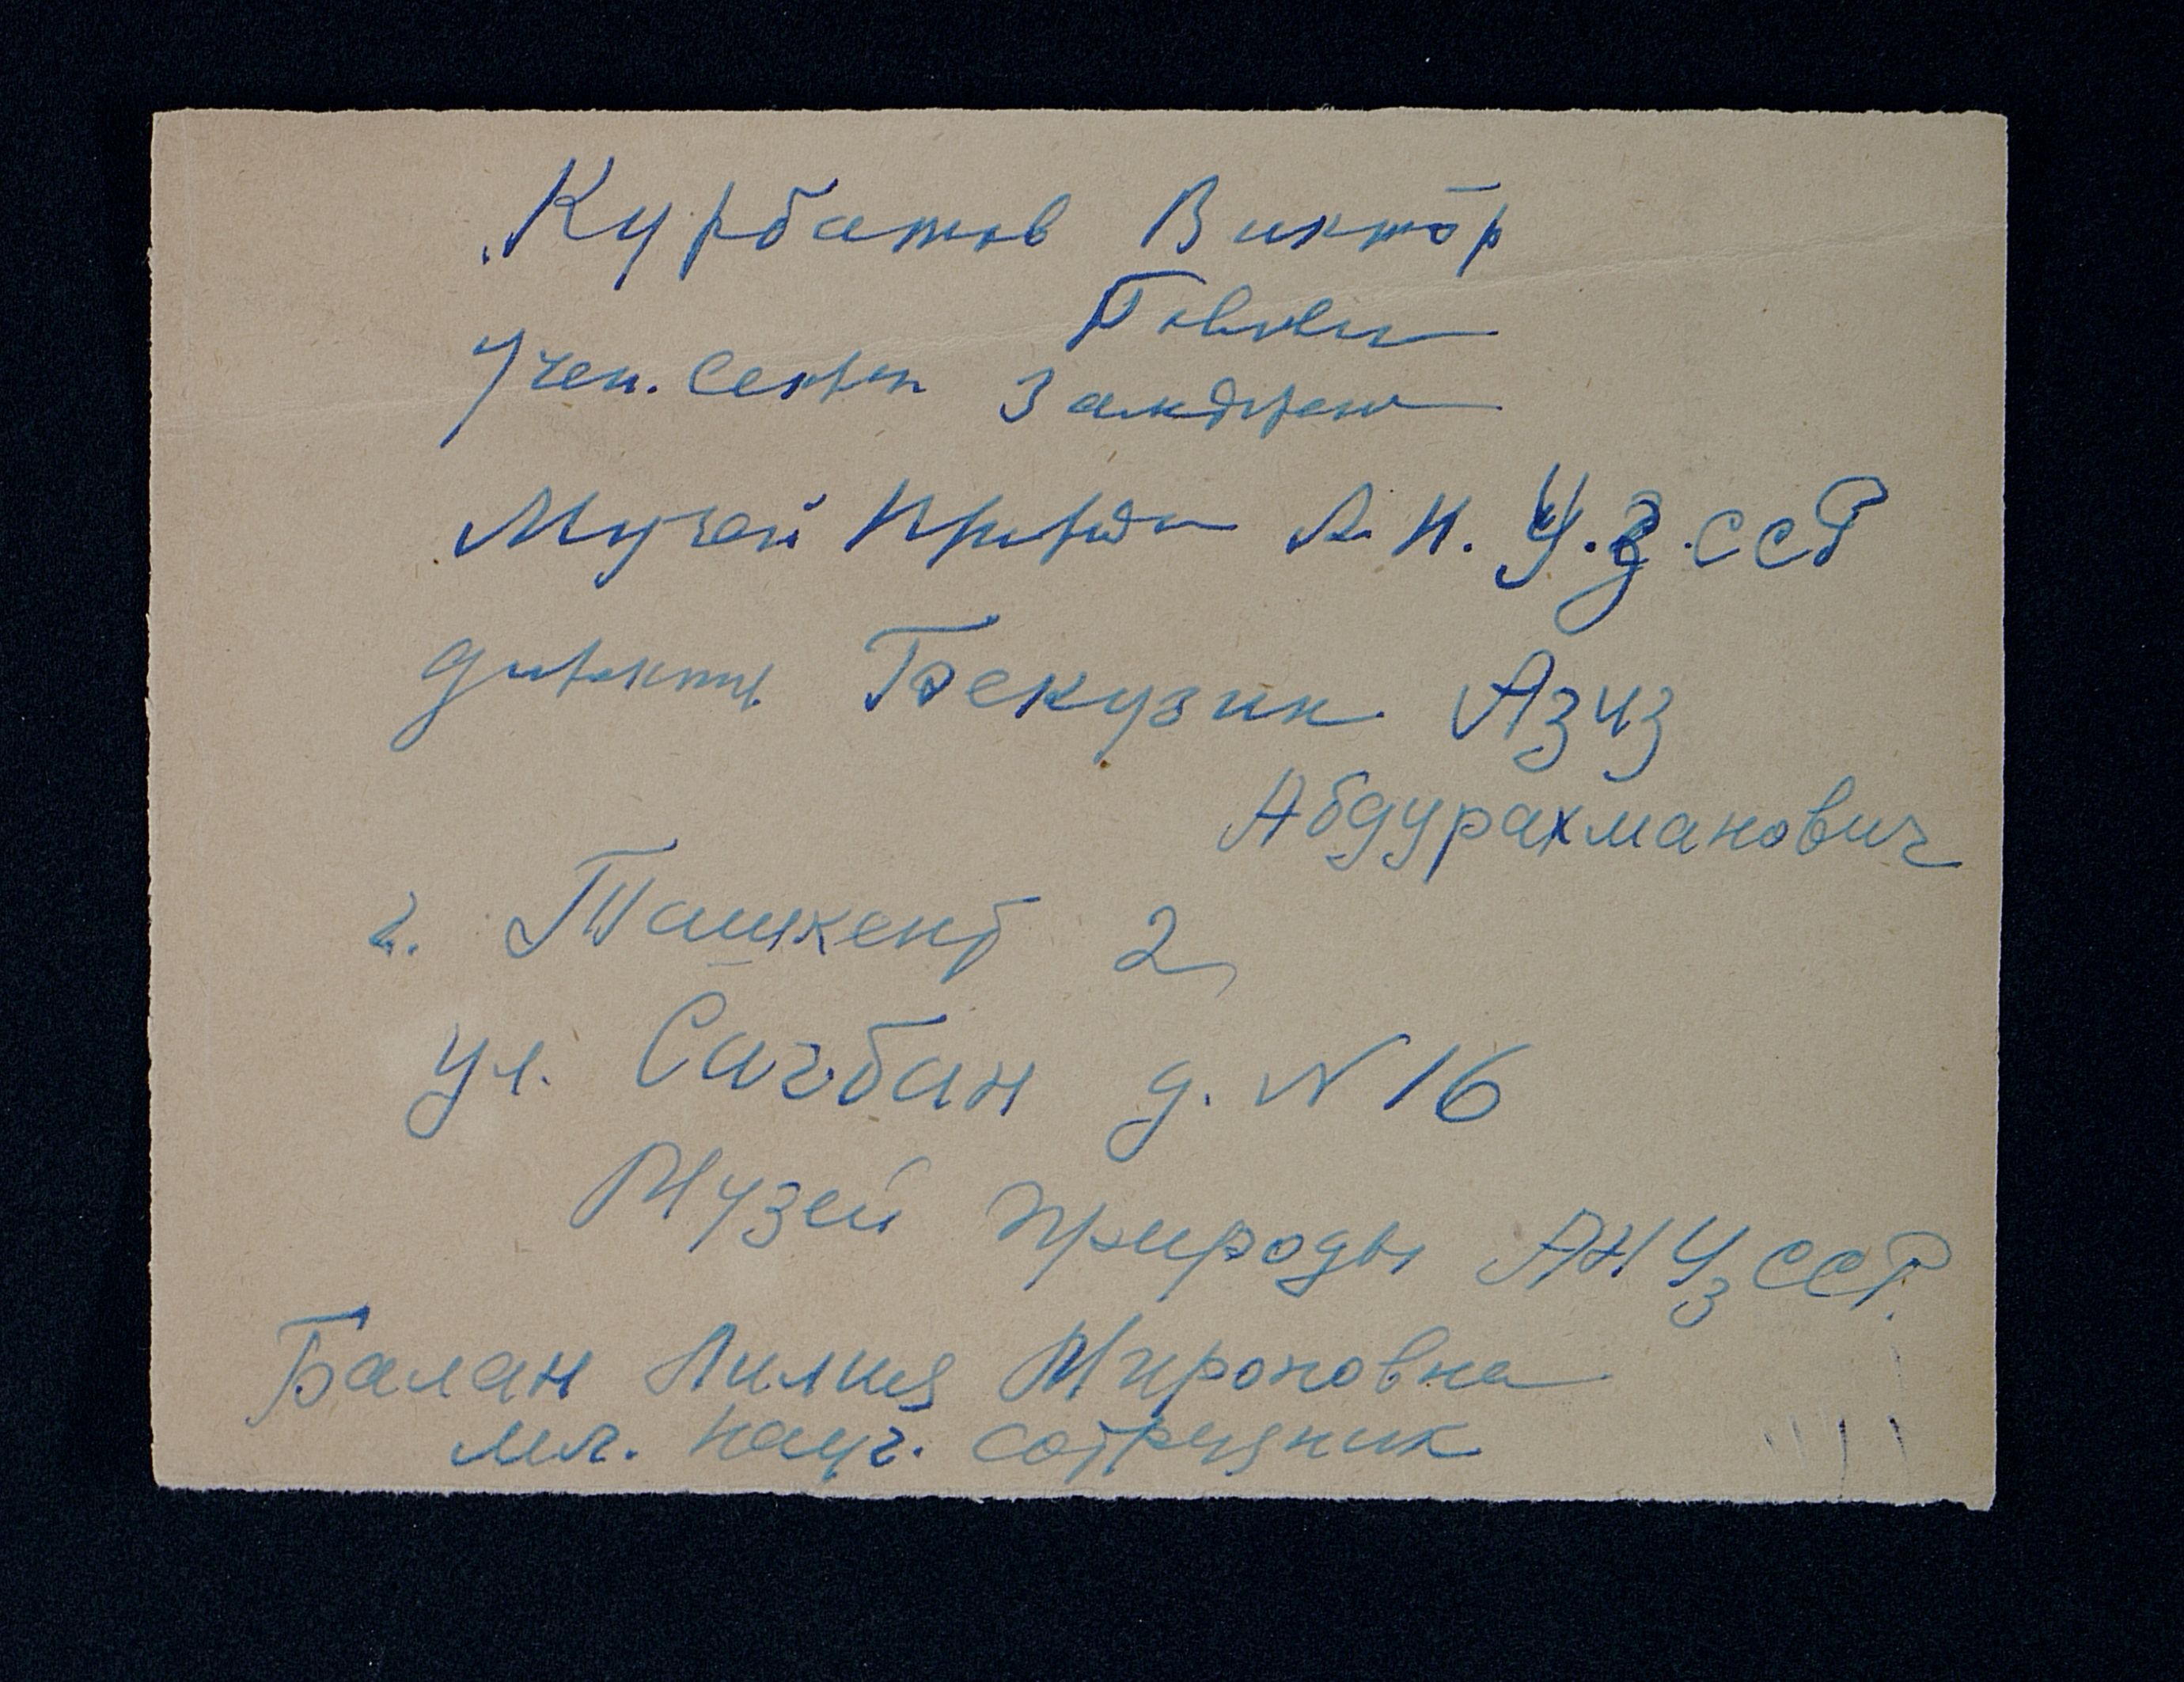 Курбатов Виктор
Учен. секрет
Музей природы А. Н. У.З. ССР
директор Бекузин Азиз
Абдурахманович
г. Ташкент 2
ул. Сагбан д. № 16
Музей природы АН УзССР.
Балан Лилия Мироновна
мл. науч. сотрудник